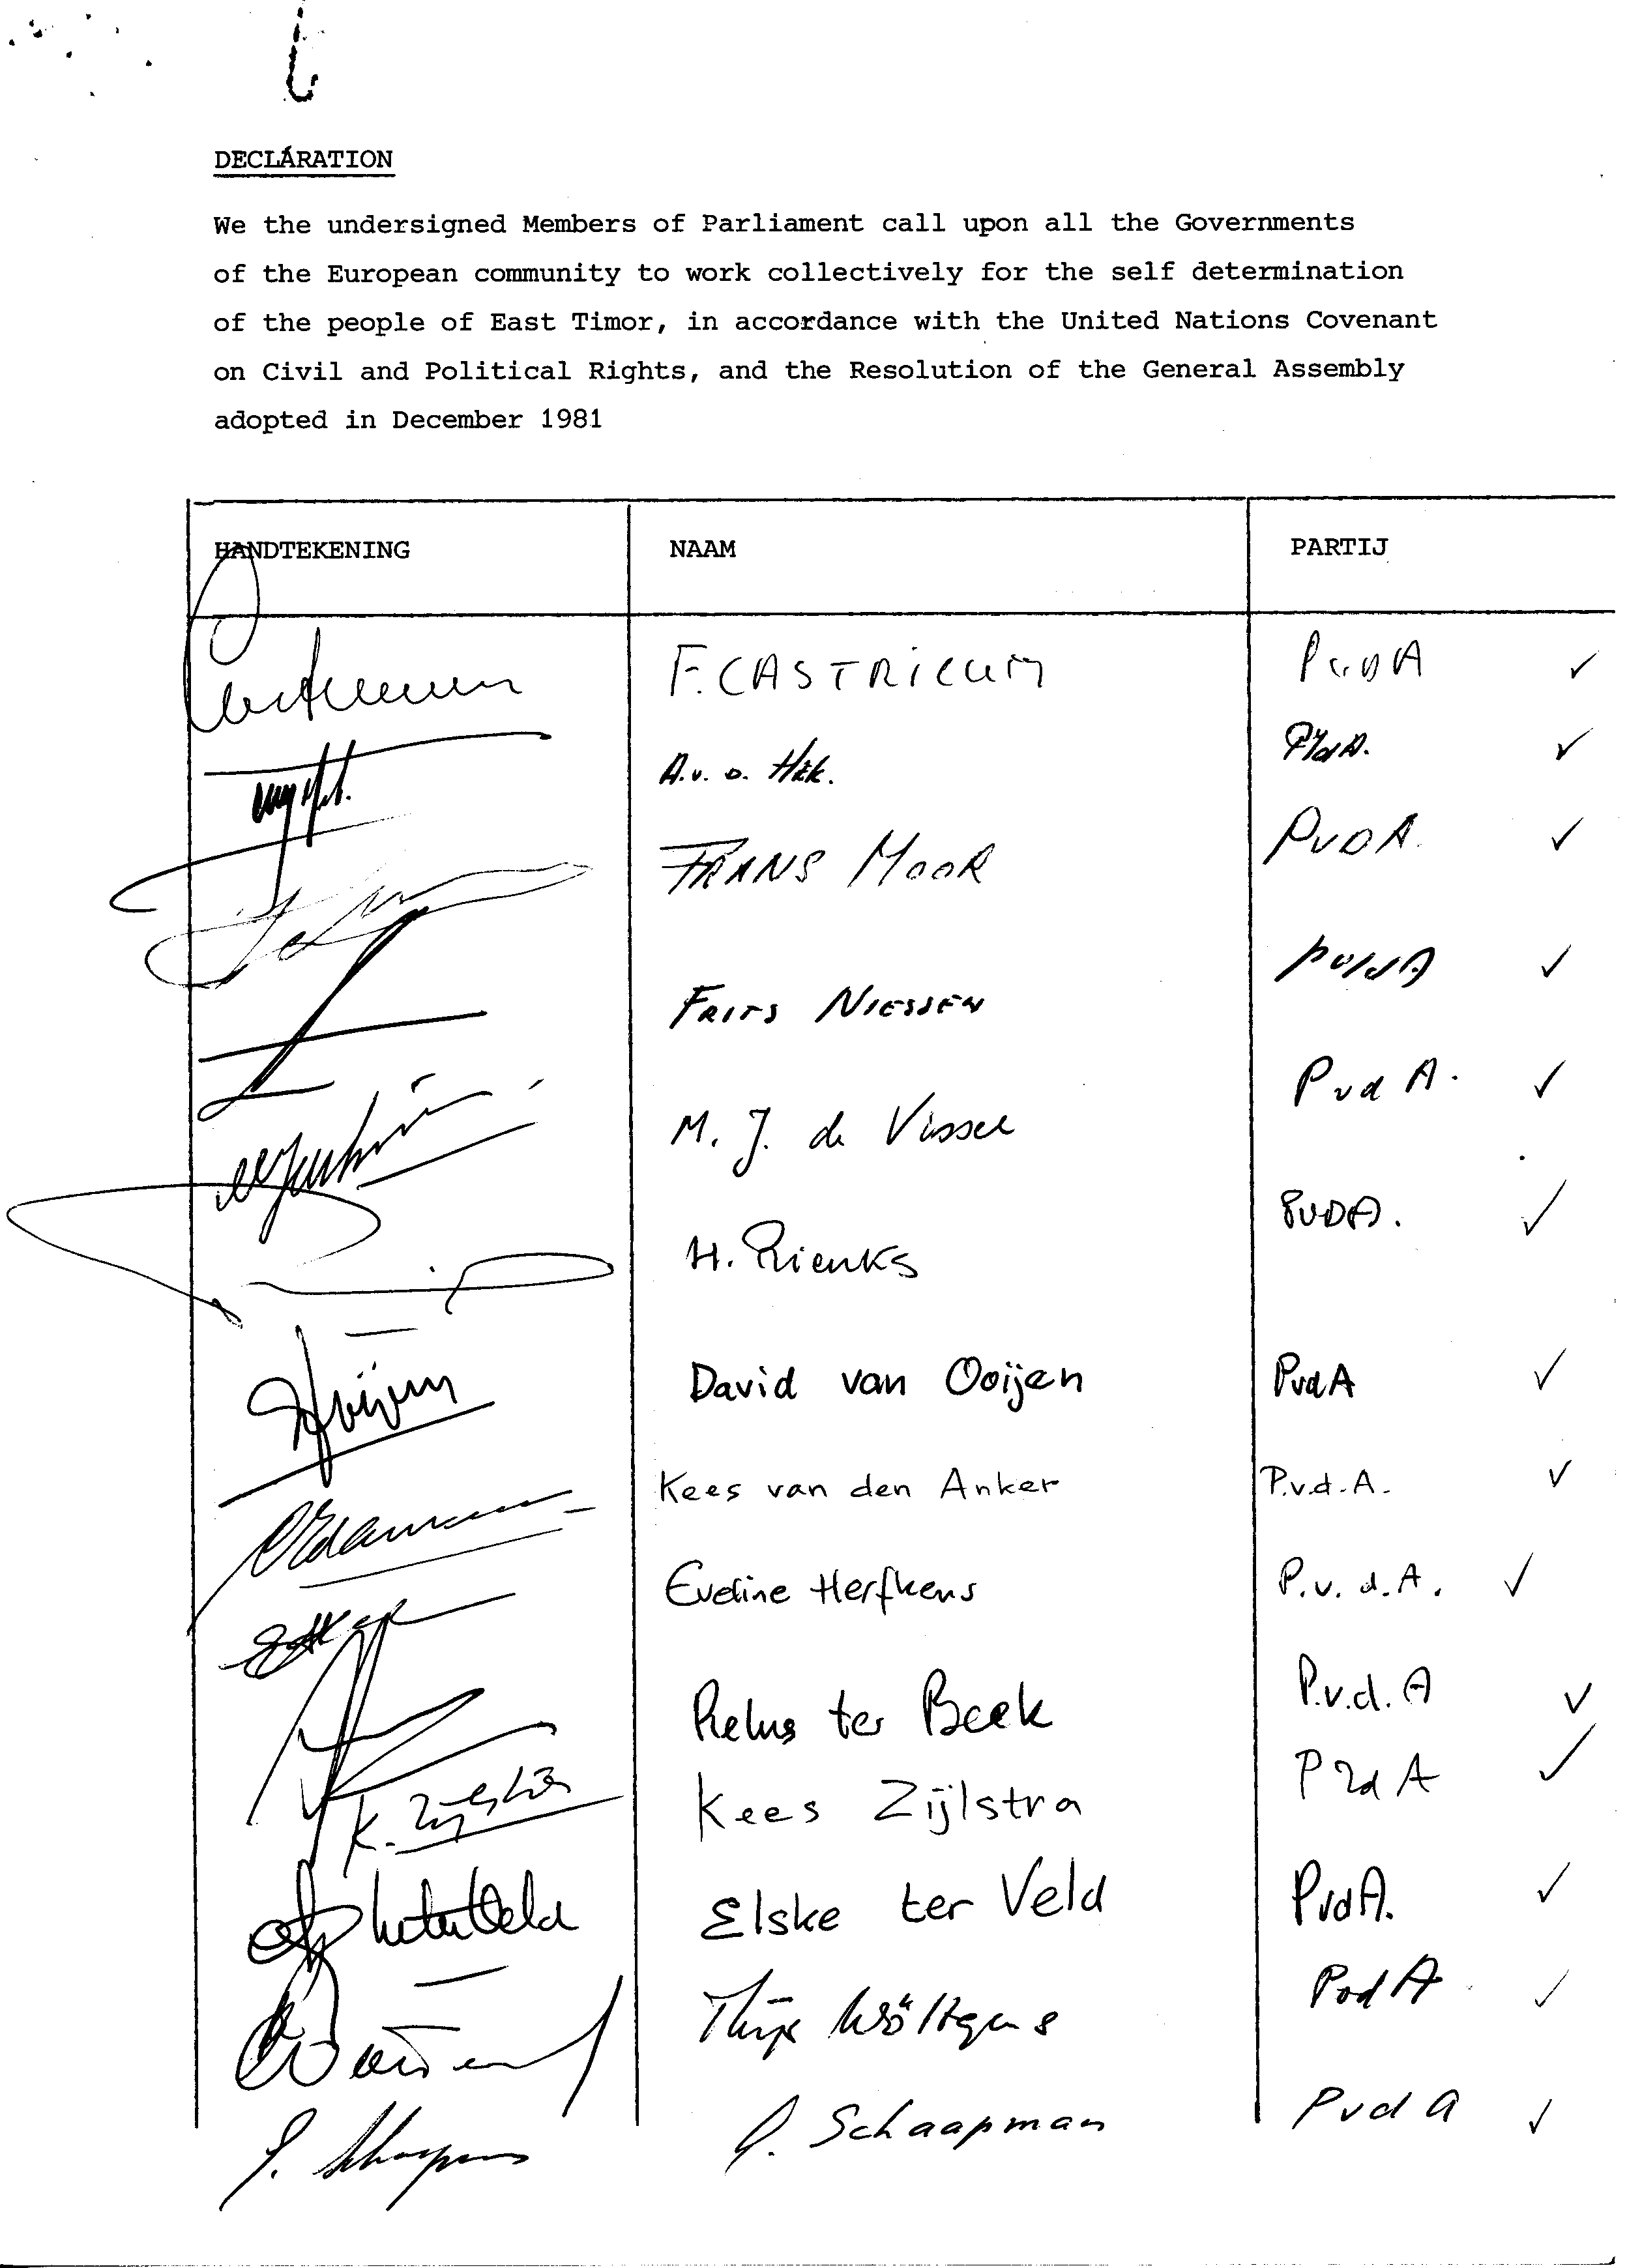 DECLARATION
We the undersigned Members of Parliament call upon all the Governments
of the European community to work collectively for the self determination
of the people of East Timor, in accordance with the United Nations Covenant
on Civil and Political Rights, and the Resolution of the General Assembly
adopted in December 1981
HANDTEKENING NAAM PARTIJ
F. CASTRICUM PvDA ✓
A. v. D. Hek. PvdA. ✓
FRANS MOOR PVDA. ✓
FRITS NIESSEN PvdA ✓
M. J. de Visser PvdA. ✓
H. Rienks PVDA. ✓
David van Ooijen PvdA ✓
Kees van den Anker P.v.d.A. ✓
Eveline Herfkens P.v.d.A. ✓
Relus ter Beek P.v.d.A ✓
K. Zijlstra Kees Zijlstra PvdA ✓
Elske ter Veld PvdA. ✓
Thijs Wöltgens PvdA ✓
Schaapman PvdA ✓